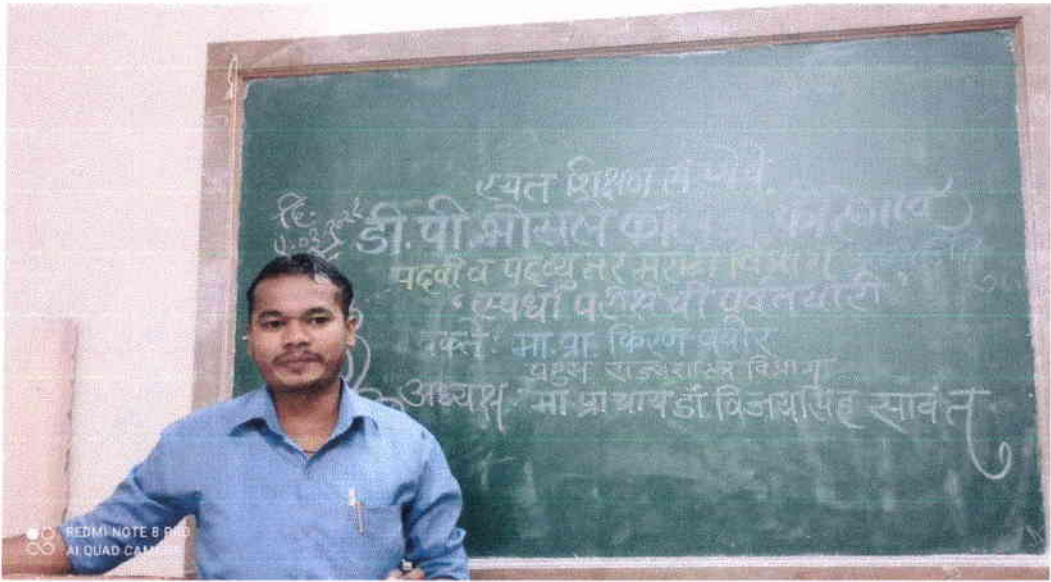 रयत शिक्षण संस्थेचे
दि.
डी. पी. भोसले कॉलेज, कोरेगाव
पदवी व पदव्युत्तर मराठी विभाग
"स्पर्धा परीक्षा पूर्वतयारी"
वक्ते: मा. प्रा. किरण
प्रमुख राज्यशास्त्र विभाग
अध्यक्ष: मा. प्राचार्य डॉ. विजयसिंह सावंत
REDMI NOTE 8 PRO
AI QUAD CAMERA